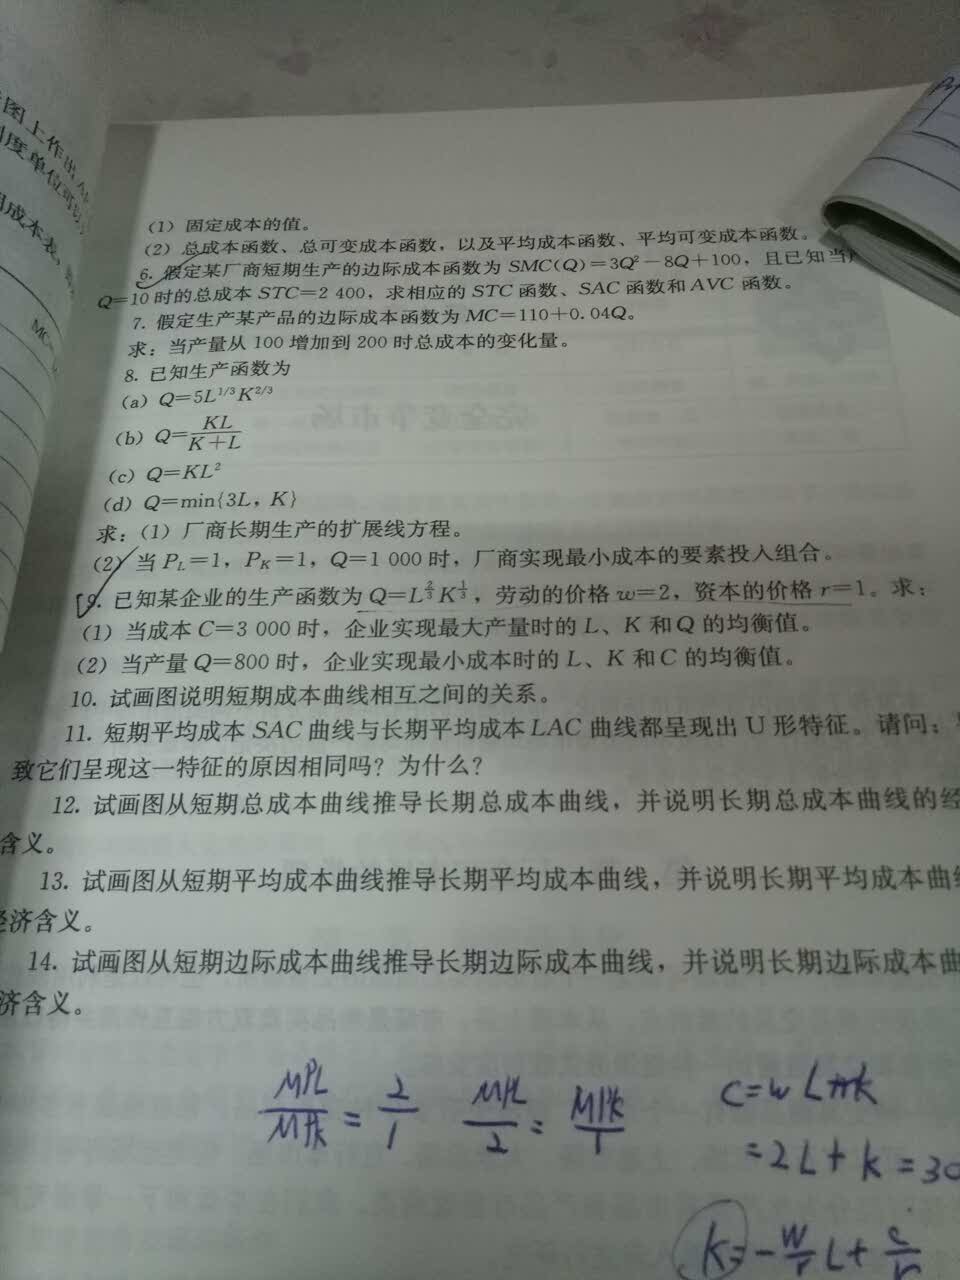 图上作出
度单位可以
成本表，
MC
(1) 固定成本的值。
(2) 总成本函数、总可变成本函数，以及平均成本函数、平均可变成本函数。
6. 假定某厂商短期生产的边际成本函数为 SMC(Q)=3Q²-8Q+100，且已知当
Q=10 时的总成本 STC=2 400，求相应的 STC 函数、SAC 函数和 AVC 函数。
7. 假定生产某产品的边际成本函数为 MC=110+0.04Q。
求：当产量从 100 增加到 200 时总成本的变化量。
8. 已知生产函数为
(a) Q=5L^{1/3}K^{2/3}
(b) Q=\frac{KL}{K+L}
(c) Q=KL²
(d) Q=min{3L，K}
求：(1) 厂商长期生产的扩展线方程。
(2) 当 P_L=1，P_K=1，Q=1 000 时，厂商实现最小成本的要素投入组合。
9. 已知某企业的生产函数为 Q=L^{\frac{2}{3}}K^{\frac{1}{3}}，劳动的价格 w=2，资本的价格 r=1。求：
(1) 当成本 C=3 000 时，企业实现最大产量时的 L、K 和 Q 的均衡值。
(2) 当产量 Q=800 时，企业实现最小成本时的 L、K 和 C 的均衡值。
10. 试画图说明短期成本曲线相互之间的关系。
11. 短期平均成本 SAC 曲线与长期平均成本 LAC 曲线都呈现出 U 形特征。请问：
致它们呈现这一特征的原因相同吗？为什么？
12. 试画图从短期总成本曲线推导长期总成本曲线，并说明长期总成本曲线的经
含义。
13. 试画图从短期平均成本曲线推导长期平均成本曲线，并说明长期平均成本曲线
经济含义。
14. 试画图从短期边际成本曲线推导长期边际成本曲线，并说明长期边际成本曲
济含义。
\frac{MPL}{MPk} = \frac{2}{1} \frac{MPL}{2} = \frac{MPk}{1} C=wL+rk
=2L+k=30
k=-\frac{w}{r}L+\frac{c}{r}